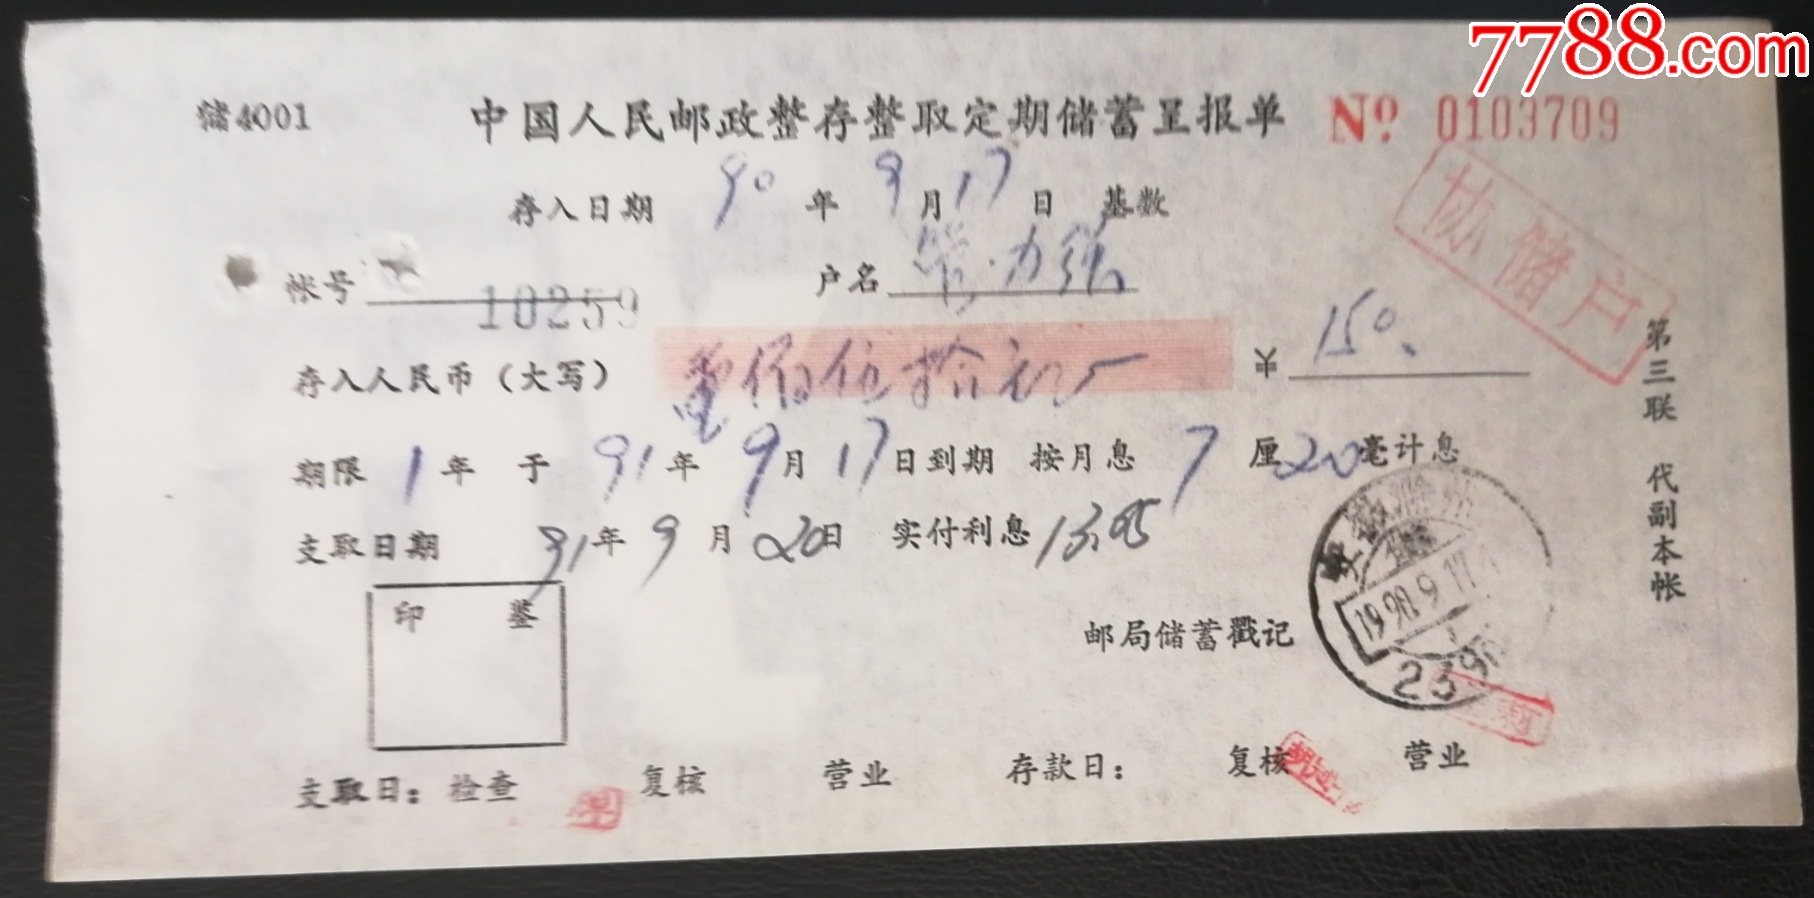 7788.com
储4001 中国人民邮政整存整取定期储蓄呈报单 No 0103709
存入日期 90年9月17日 基数
协储户
帐号 10259 户名
存入人民币(大写) 壹佰伍拾元 ¥150.
期限1年于91年9月17日到期 按月息7厘20毫计息
支取日期 91年9月20日 实付利息13.05
印鉴
邮局储蓄戳记
安徽滁州
1990.9.17
239
支取日: 检查 复核 营业 存款日: 复核 营业
第三联 代副本帐